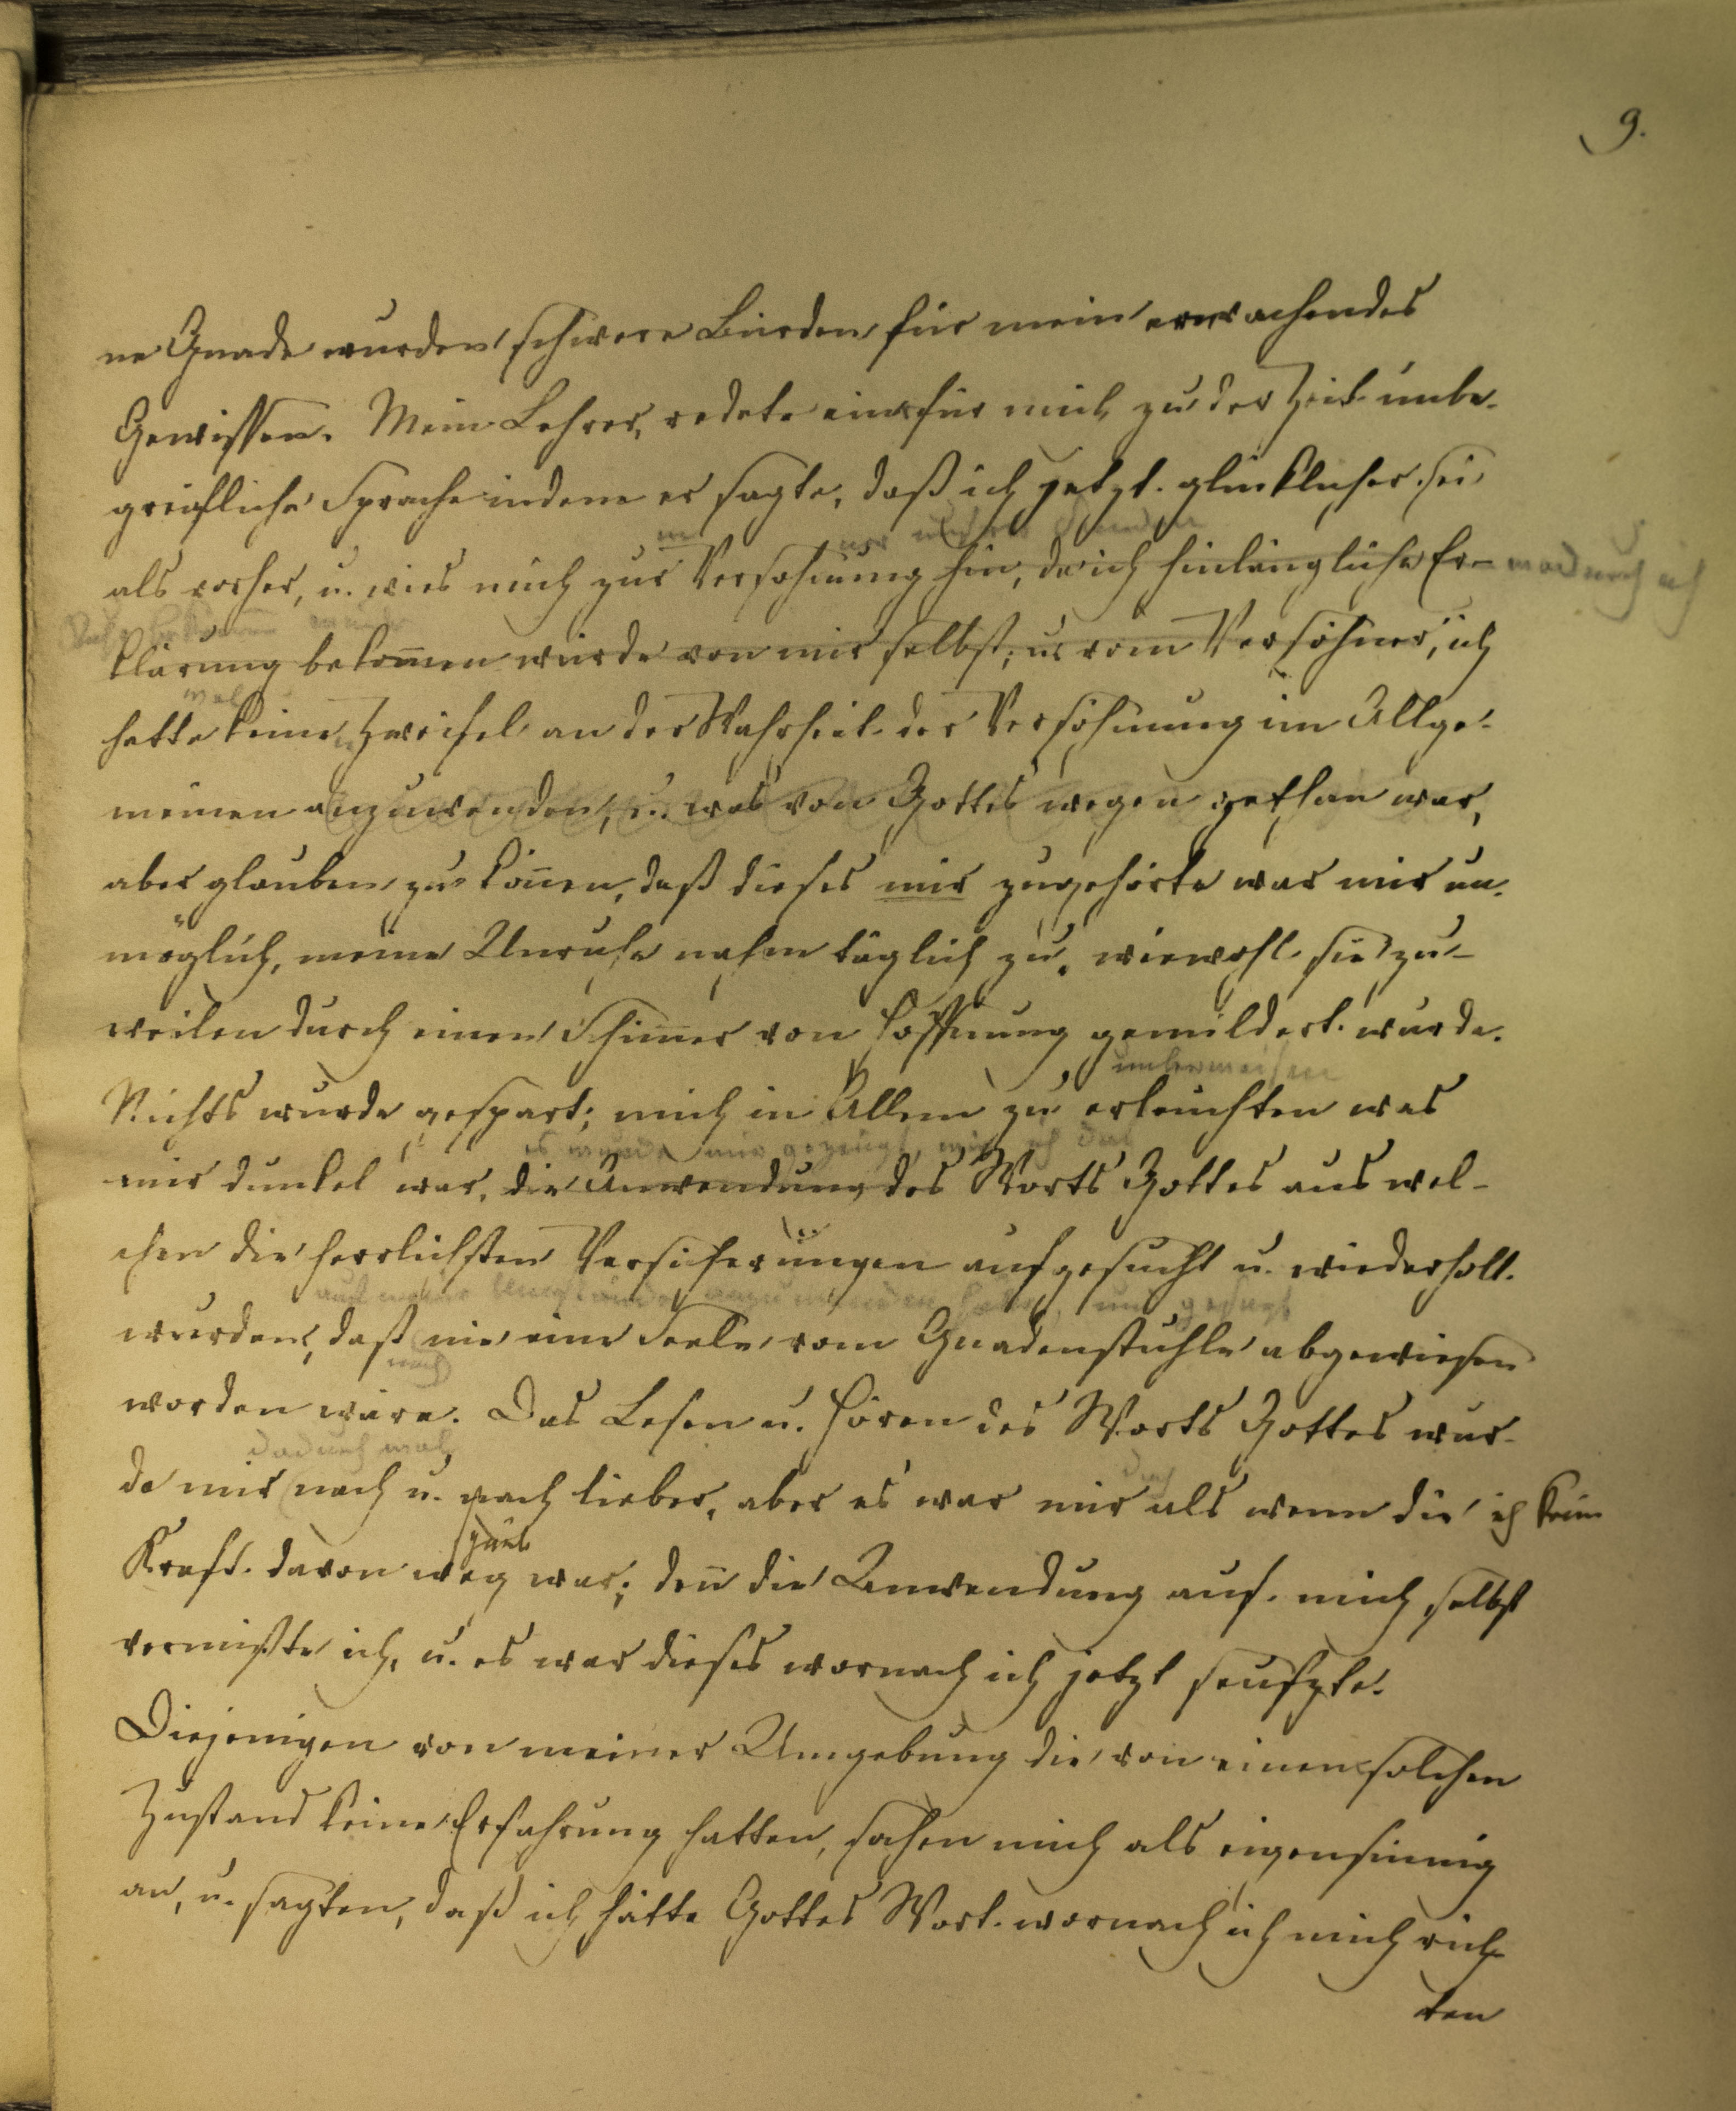 9.
ne Gnade wurden schwere Bürden für mein erwachendes
Gewissen. Mein Lehrer, redete eine für mich zu der Zeit unbe-
greifliche Sprache indem er sagte, daß ich jetzt glücklicher sei
als vorher, u. wies mich zur Versöhnung hin, da ich hinlängliche Er-
klärung bekom̄en würde von mir selbst, u. vom Versöhner, ich
hatte keine Zweifel an der Wahrheit der Versöhnung im Allge-
meinen anzuwenden, u. was von Gottes wegen gethan war,
aber glauben zu kön̄en, daß dieses mir zugehörte war mir un-
möglich, meine Unruhe nahm täglich zu, wiewohl sie zu-
weilen durch einen Schim̄er von Hoffnung gemildert wurde.
unterweisen
Nichts wurde gespart; mich in Allem zu erleuchten was
es wurde mir gezeigt, wie ich das
mir dunkel war, die Anwendung des Worts Gottes aus wel-
chen die herrlichsten Versicherungen aufgesucht u. wiederholt
auf meine Umstände anzuwenden habe, und gesagt
wurden, daß nie eine Seele vom Gnadenstuhle abgewiesen
worden wäre. Das Lesen u. Hören des Worts Gottes wur-
de mir nach u. nach lieber, aber es war mir doch als wenn die ich keine
spürte
Kraft davon weg war; den̄ die Anwendung auf mich selbst
vermißte ich, u. es war dieses wornach ich jetzt seufzte.
Diejenigen von meiner Umgebung die von einen solchen
Zustand keine Erfahrung hatten, sahen mich als eigensinnig
an, u. sagten, daß ich hätte Gottes Wort wornach ich mich rich-
ten